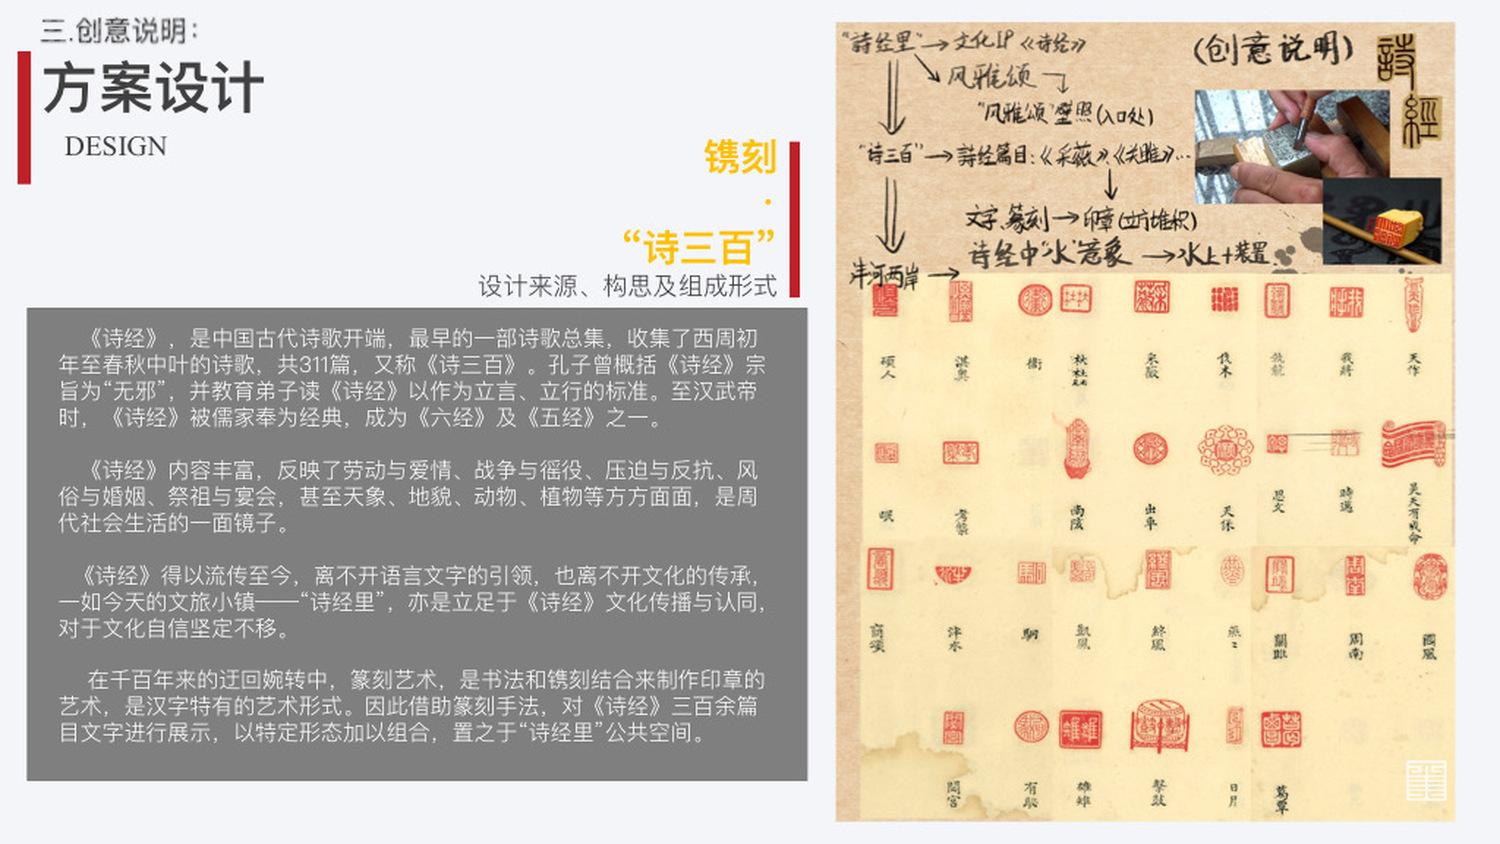 三.创意说明:
方案设计
DESIGN
镌刻
·
“诗三百”
设计来源、构思及组成形式
《诗经》，是中国古代诗歌开端，最早的一部诗歌总集，收集了西周初
年至春秋中叶的诗歌，共311篇，又称《诗三百》。孔子曾概括《诗经》宗
旨为“无邪”，并教育弟子读《诗经》以作为立言、立行的标准。至汉武帝
时，《诗经》被儒家奉为经典，成为《六经》及《五经》之一。
《诗经》内容丰富，反映了劳动与爱情、战争与徭役、压迫与反抗、风
俗与婚姻、祭祖与宴会，甚至天象、地貌、动物、植物等方方面面，是周
代社会生活的一面镜子。
《诗经》得以流传至今，离不开语言文字的引领，也离不开文化的传承，
一如今天的文旅小镇——“诗经里”，亦是立足于《诗经》文化传播与认同，
对于文化自信坚定不移。
在千百年来的迂回婉转中，篆刻艺术，是书法和镌刻结合来制作印章的
艺术，是汉字特有的艺术形式。因此借助篆刻手法，对《诗经》三百余篇
目文字进行展示，以特定形态加以组合，置之于“诗经里”公共空间。
“詩经里”→文化IP《诗经》
(创意说明)
詩經
风雅颂
“风雅颂”壁照(入口处)
“诗三百”→詩经篇目:《采薇》《关雎》…
文字、篆刻→印章(立方堆积)
诗经中“水”意象→水上+装置
沣河两岸→
碩人
淇奥
衛
采薇
伐木
我將
天作
氓
考槃
南陔
出車
天保
思文
時邁
昊天有成命
商頌
泮水
駉
凱風
終風
燕燕
關雎
周南
國風
閟宮
有駜
雄雉
擊鼓
日月
葛覃